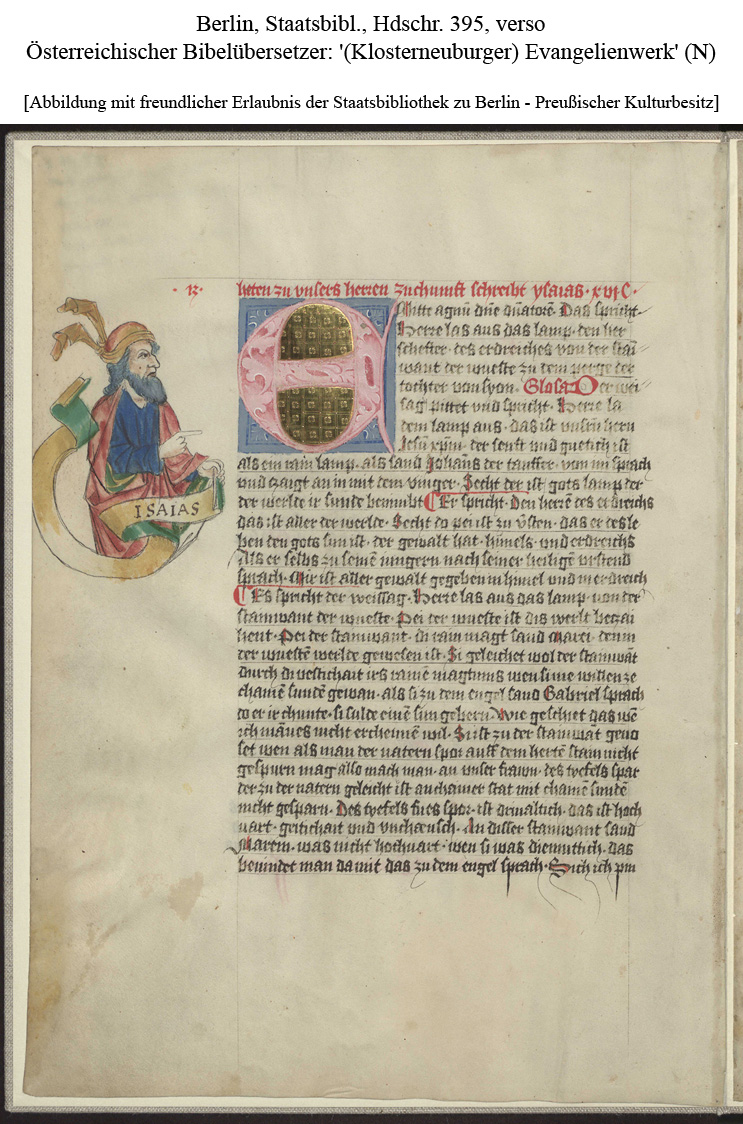 Berlin, Staatsbibl., Hdschr. 395, verso
Österreichischer Bibelübersetzer: '(Klosterneuburger) Evangelienwerk' (N)
[Abbildung mit freundlicher Erlaubnis der Staatsbibliothek zu Berlin - Preußischer Kulturbesitz]
heten zu vnsers herren zuchunft schreibt ysaias · xvi C ·
E Mitte agnū dūe dn̄atorē · Das spricht ·
Herre las aus das lamp · den her
scheffer · des erdreiches von der stai
want der wueste zu dem perge der
tochter von syon · Glosa Der wei
sag pittet vnd spricht · Herre la
dem lamp aus · das ist vnsern hern
Jesū xp̄m · der senft vnd guetich ist
als ein rain lamp · als sand Johans der tauffer · von im sprach
vnd zaigt an in mit dem vinger · Secht der ist gots lamp der
der werlde ir sunde benimbt Er spricht · Den herrē des erdreichs
das ist aller der werlde · Secht do pei ist zu v̄sten · das er desse
ben den gots sun ist · der gewalt hat · himels · vnd erdreichs
Als er selbs zu seinē iungern nach seiner heiligē vrstend
sprach · Mir ist aller gewalt gegeben in himel vnd in erdreich
Es spricht der weissag · Herre las aus das lamp · von der
stainwant der wueste · Pei der wueste ist dis werlt bezai
hent · Pei der stainwant · di rain magt sand Marei · denn
der wuestē werlde gewesen ist · Si geleichet wol der stainwāt
durch di vestichait irs rainē magtums wen si nie willen ze
chainē sundē gewan · als si zu dem engel sand Gabriel sprach
do er ir chunte · si sulde einē sun gebern · Wie geschiet das wē
ich mannes nicht erchennē wil · Si ist zu der stainwāt geno
set wen als man der natern spor auff dem hertē stain nicht
gespurn mag also mach man · an vnser frawn · des tyefels spar
der zu der natern geleicht ist an chainer stat mit chainē sundē
nicht gesparn · Des tyefels fues spor · ist drivaltich · das ist hoch
uart · geitichait vnd vnchæusch · An diser stainwant sand
Marein · was nicht hochuart · wen si was diemutlich · das
bevindet man da mit das zu dem engel sprach · Sich ich pin
ISAIAS